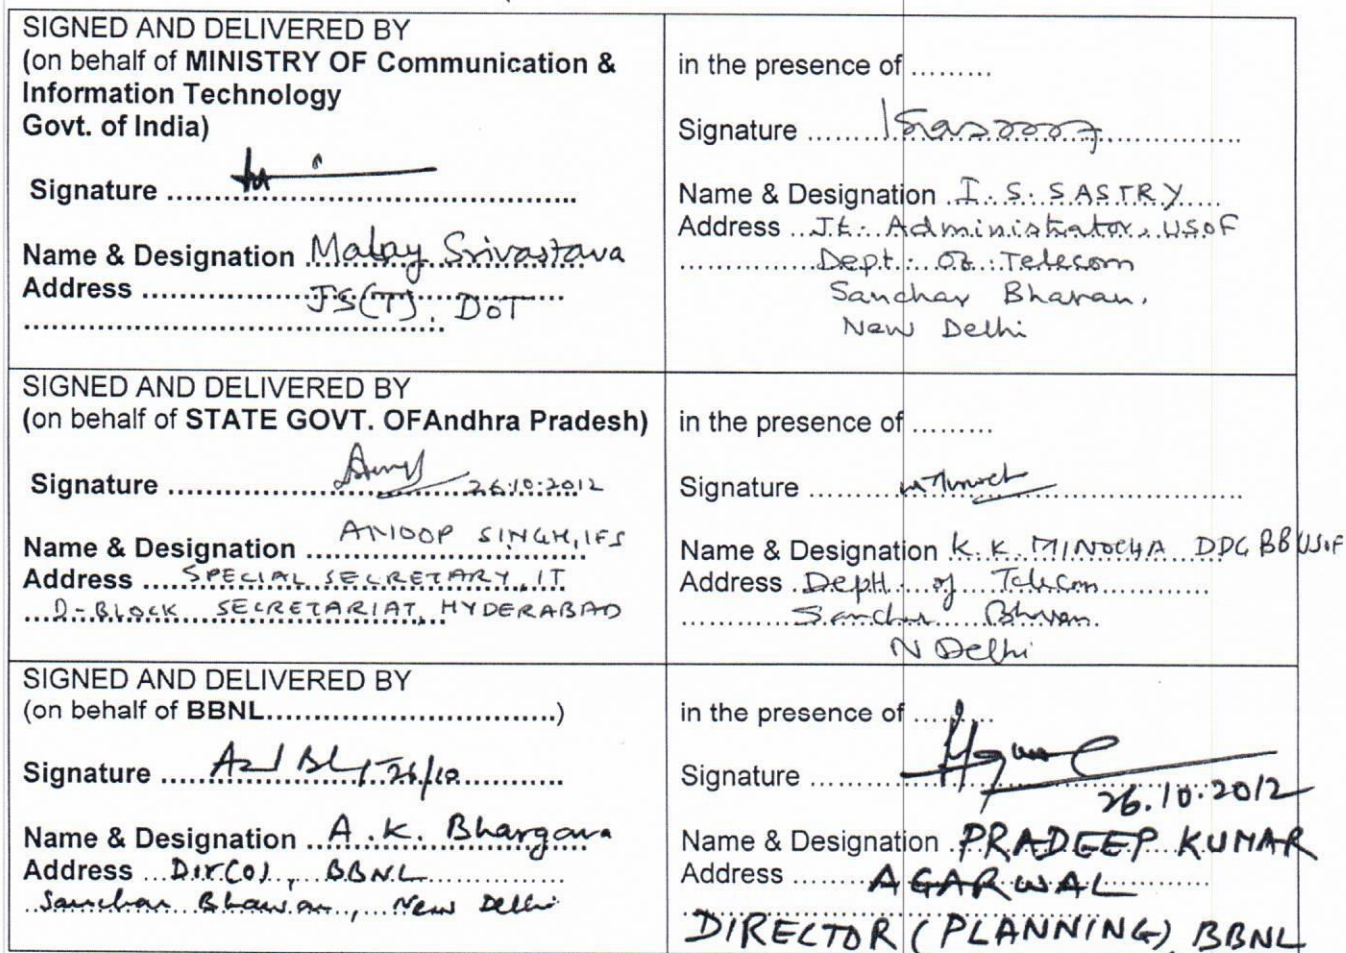 SIGNED AND DELIVERED BY
(on behalf of MINISTRY OF Communication &
Information Technology
Govt. of India)
Signature ..........................................
Name & Designation Malay Srivastava
Address ..........................................
JS(T), DOT
in the presence of .........
Signature ..........................................
Name & Designation I.S. SASTRY
Address Jt. Administrator, USOF
Dept. of Telecom
Sanchar Bhavan,
New Delhi
SIGNED AND DELIVERED BY
(on behalf of STATE GOVT. OFAndhra Pradesh)
Signature .......................................... 26.10.2012
Name & Designation ANOOP SINGH, IFS
Address SPECIAL SECRETARY, IT
D-BLOCK SECRETARIAT, HYDERABAD
in the presence of .........
Signature ..........................................
Name & Designation K.K. MINOCHA DDG BB USOF
Address Deptt. of Telecom
Sanchar Bhvan
N Delhi
SIGNED AND DELIVERED BY
(on behalf of BBNL...............................)
Signature .......................................... 26/10
Name & Designation A.K. Bhargava
Address Dir(O), BBNL
Sanchar Bhawan, New Delhi
in the presence of .........
Signature ..........................................
26.10.2012
Name & Designation PRADEEP KUMAR
Address AGARWAL
DIRECTOR (PLANNING) BBNL